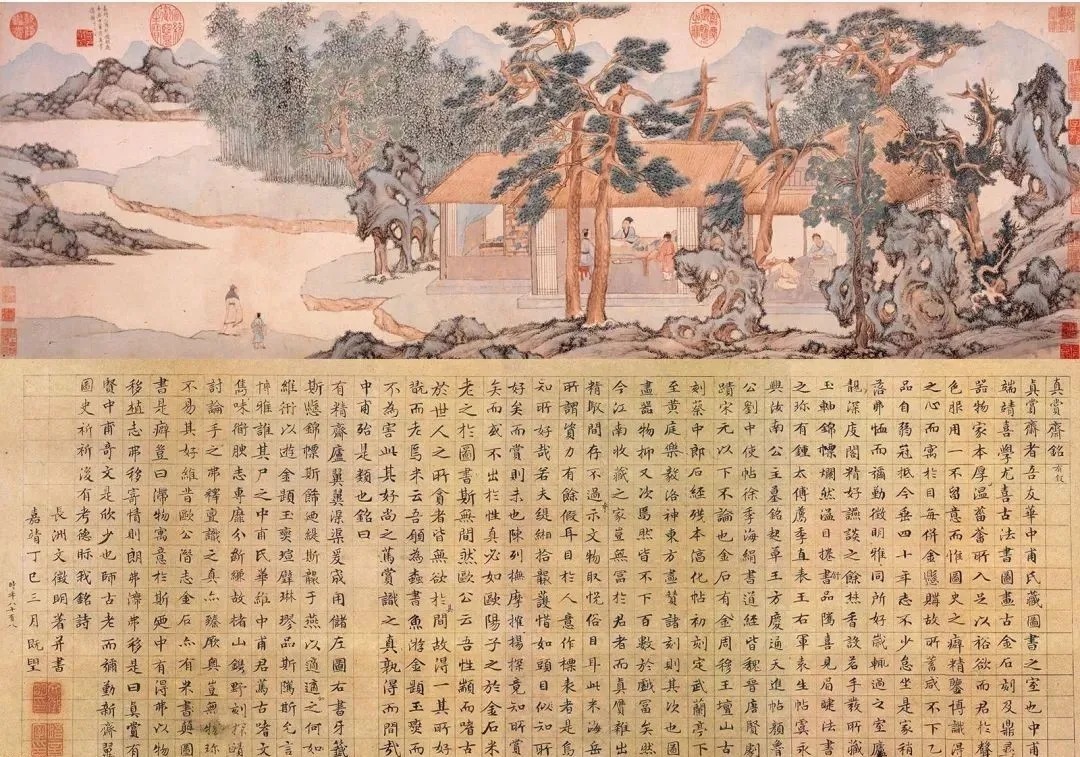 真賞齋銘 有敘
真賞齋者吾友華中甫氏藏圖書之室也中甫
端靖喜學尤喜古法書圖畫古金石刻及鼎彝
器物家本厚溫菑畬所入足以裕欲而君於聲
色服用一不留意而惟圖史之癖精鑒博識得
之心而寓於目每併金懸購故所蓄咸不下乙
品自弱冠抵今垂四十年志不少怠坐是家稍
落弗恤而彌勤徵明雅同所好歲輒過之室廬
靚深庋閣精好讌談之餘焚香設茗手發所藏
玉軸錦幖爛然溢目捲舒品隲喜見眉睫法書
之珍有鍾太傅薦季直表王右軍袁生帖虞永
興汝南公主墓銘起草王方慶通天進帖顏魯
公劉中使帖徐季海絹書道經皆魏晉唐賢劇
蹟宋元以下不論也金石有周穆王壇山古
刻蔡中郎石經殘本淳化帖初刻定武蘭亭下
至黃庭樂毅洛神東方畫贊諸刻則其次也圖
畫器物抑又次焉然皆不下百數於戲富矣然
今江南收藏之家豈無富於君者而真贋雜出
精駁間存不過示文物取悅俗目耳此米海岳
所謂資力有餘假耳目於人意作標表者是烏
知所好哉若夫緹緗拾襲護惜如頭目似知所
好矣而賞則未也陳列撫摩揚搉探竟知所賞
矣而或不出於性真必如歐陽子之於金石米
老之於圖書斯無間然歐公云吾性顓而嗜古
於世人之所貪者皆無欲於其間故得一其所好
翫而老焉米云吾願為蠹書魚游金題玉躞而
不為害此其好尚之篤賞識之真孰得而間哉
中甫殆是類也銘曰
有精齋廬翼翼渠渠爰宬用儲左圖右書牙籤
斯懸錦幖斯飾迺緹斯襲于燕以適適之何如
維衎以遊金題玉躞瑄璧琳璆品斯隲斯允言
博雅誰其尸之中甫氏華維中甫君篤古嗜文
雋味銜腴志專靡分斷縑故楮山鐫野刻探賾
討論手之弗釋亶識之真亦臻厥奧豈無物珍
不易其好維昔歐公潛志金石亦有米書顛圖
書是癖豈曰滯物寓意於斯迺中有得弗以物
移植志弗移寄情則朗弗滯弗移是曰真賞有
賢中甫奇文是欣少也師古老而彌勤新齋翼
圖史祈祈後有考德眎我銘詩
長洲文徵明著并書
嘉靖丁巳三月既望
時年八十有八